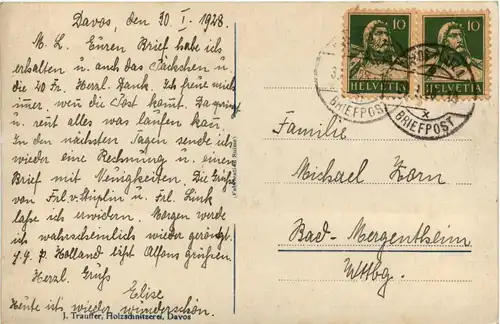 Davos, den 30. I. 1928.
M. L. Euren Brief habe ich
erhalten u. auch das Päckchen u.
die 20 Fr. Herzl. Dank. Ich freue mich
immer, wenn die Post kommt. Da springt
u. rennt alles was laufen kann.
In den nächsten Tagen sende ich
wieder eine Rechnung u. einen
Brief mit Neuigkeiten. Die Grüße
von Frl. v. u. Frl. Link
laße ich erwidern. Morgen werde
ich wahrscheinlich wieder geröngt.
Holland läßt Alfons grüßen.
Herzl. Gruß
Elise
Heute ists wieder wunderschön.
J. Trauffer, Holzschnitzerei, Davos
10 10
HELVETIA HELVETIA
BRIEFPOST BRIEFPOST
Familie
Michael Horn
Bad-Mergentheim
Wttbg.